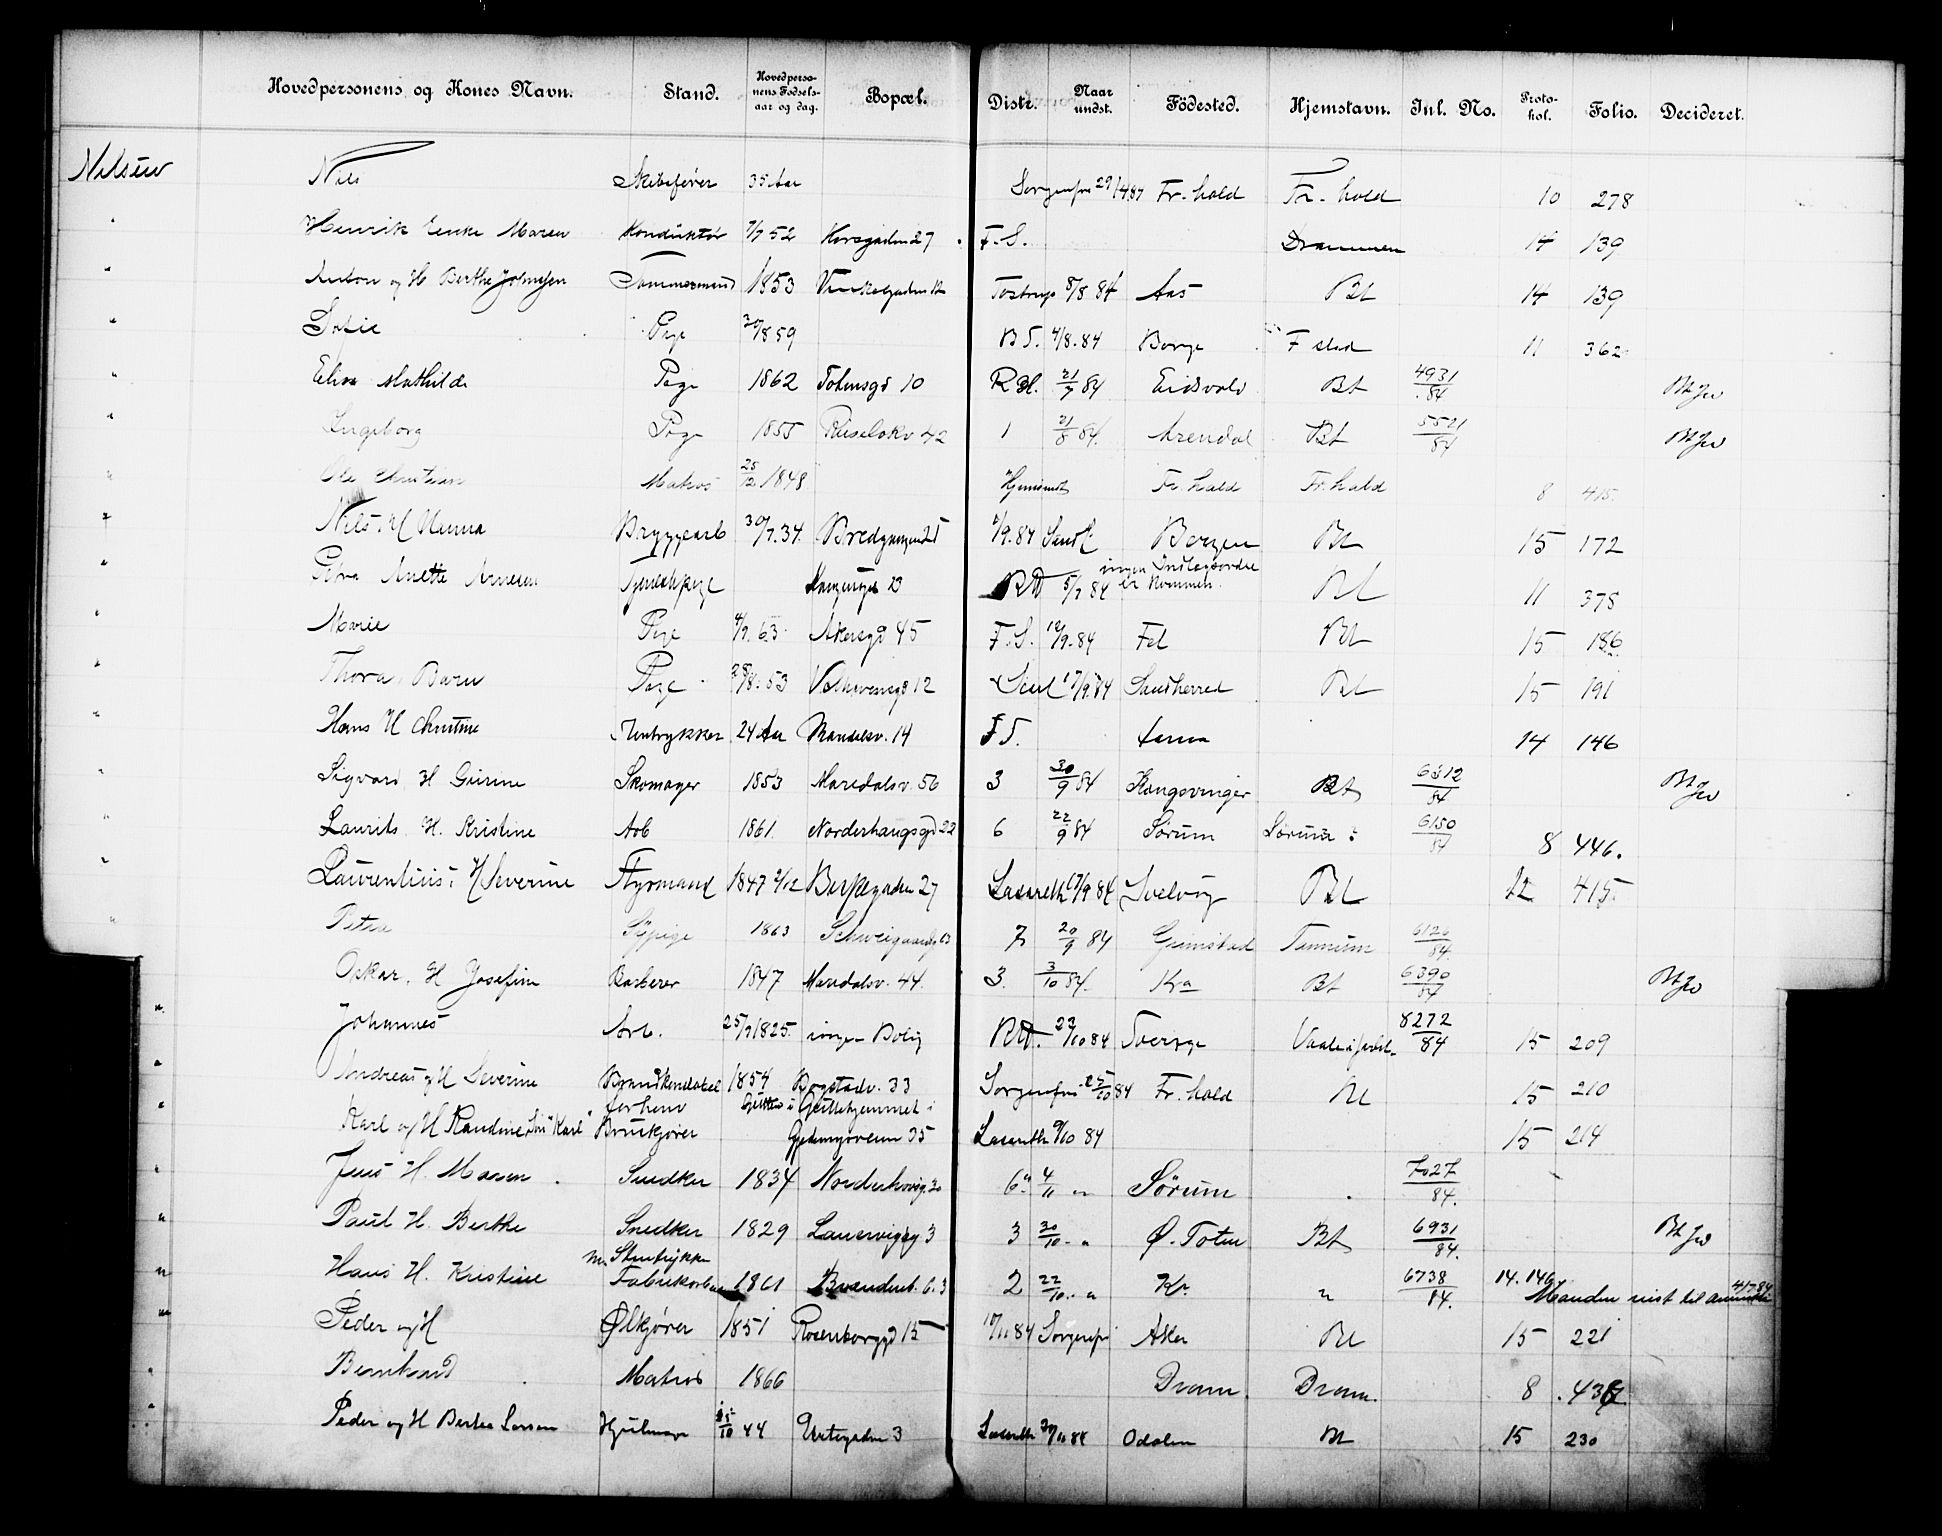 Hovedpersonens og Kones Navn. Stand. Hovedperso-nens Fødsels-aar og dag. Bopæl. Distr. Naar undst. Födested. Hjemstavn. Inl. No. Proto-kol. Folio. Decideret.
Nilsen Nils Skibsfører 35 Aar Sorgenfri 29/4 87 Fr. hald Fr. hald 10 278
" Henrik Enke Maren Konduktør 7/7 52 27 F. S. Drammen 14 139
" Anton og H Berthe Johnsen Tømmermand 1853 Tostrup 8/8 84 Aas Bt 14 139
" Sofie Pige 30/8 59 B S. 4/8. 84 Borge F stad 11 362
" Elise Mathilde Pige 1862 Toftensgd 10 21/7 84 Eidsvold Bt 4931/84 Bt Jv
" Ingeborg Pige 1855 Ruseløkv 42 1 21/8 84. Arendal Bt 5521/84 Bt Jv
" Ole Christian Matros 25/12 1848 Hjemsendt Fr. hald Fr. hald 8 415.
" Nils. H Hanna Bryggearb 30/7. 34. Bredgangen 25 2/9. 84 Bergen Bt 15 172
" Petra Anette Arnesen Tjenestepige 23 5/7 84 ingen Indlagsordre er kommen. Bt 11 378
" Marie Pige 4/9. 63. Akersgd 45 F. S. 12/9. 84 Fet Bt 15 186
" Thora. Barn Pige 28/8. 53 12 17/9. 84 Sandherred Bt 15 191
" Hans H Christine Stentrykker 24 Aar Maridalsv. 14 F S. 14 146
" Sigvard H Gurine Skomager 1853 Maridalsv. 56 3 30/9 84 Kongsvinger Bt 6312/84 Bt Jv
" Laurits. H. Kristine Arb 1861. Norderhaugsgd 22 6 22/9 84 Sørum Sørum 6150/84 8 446.
" Laurentius. H Severine Styrmand 1847 2/12 27 Lasareth 17/9 84 Svelvig Bt 12 415
" Petra Sypige 1863 Schweigaardsg 63 7 20/9 84 Grimstad 6126/84.
Oskar. H Josefine Barberer 1847 Maridalsv. 44. 3. 3/10 84. Kra Bt 6390/84 Bt Jv
" Johannes Arb. 25/9 1825. ingen Bolig 23/10 84 Sverige 8272/84 15 209
" Andreas og H Severine Brandkonstabel 1854 Bogstadv. 33 Sorgenfri 25/10 84 Fr. hald Bt 15 210
" Karl og H Randine, Søn "Karl" forhenv Bruskjører Gutten i Guttehjemmet i 35 Lasareth 9/10 84 15 214
" Jens H. Maren Snedker 1834 30 6 4/11 " Sørum 7027/84.
" Paul H. Berthe Snedker 1829 Laurvigsg 3 3 30/10 - " Ø. Toten Bt 6931/84. Bt Jv
" Hans H. Kristine Stentrykker Fabrikarb 1861 Brænderib. 6. 3 2 22/10 - " Kr. " 6738/84. 14. 146 Manden reist til Amerika
" Peder og H Ølkjører 1851 Rosenborggd 15 10/11 84 Sorgenfri Aker Bt 15 221
" Bernhard Matros 1866 Dram. Dram. 8 .436
" Peder og H Berthe Larsen Hjulmager 15/10 44 Urtegaden 3 Lasareth 20/11 84 Odalen Bt 15 230